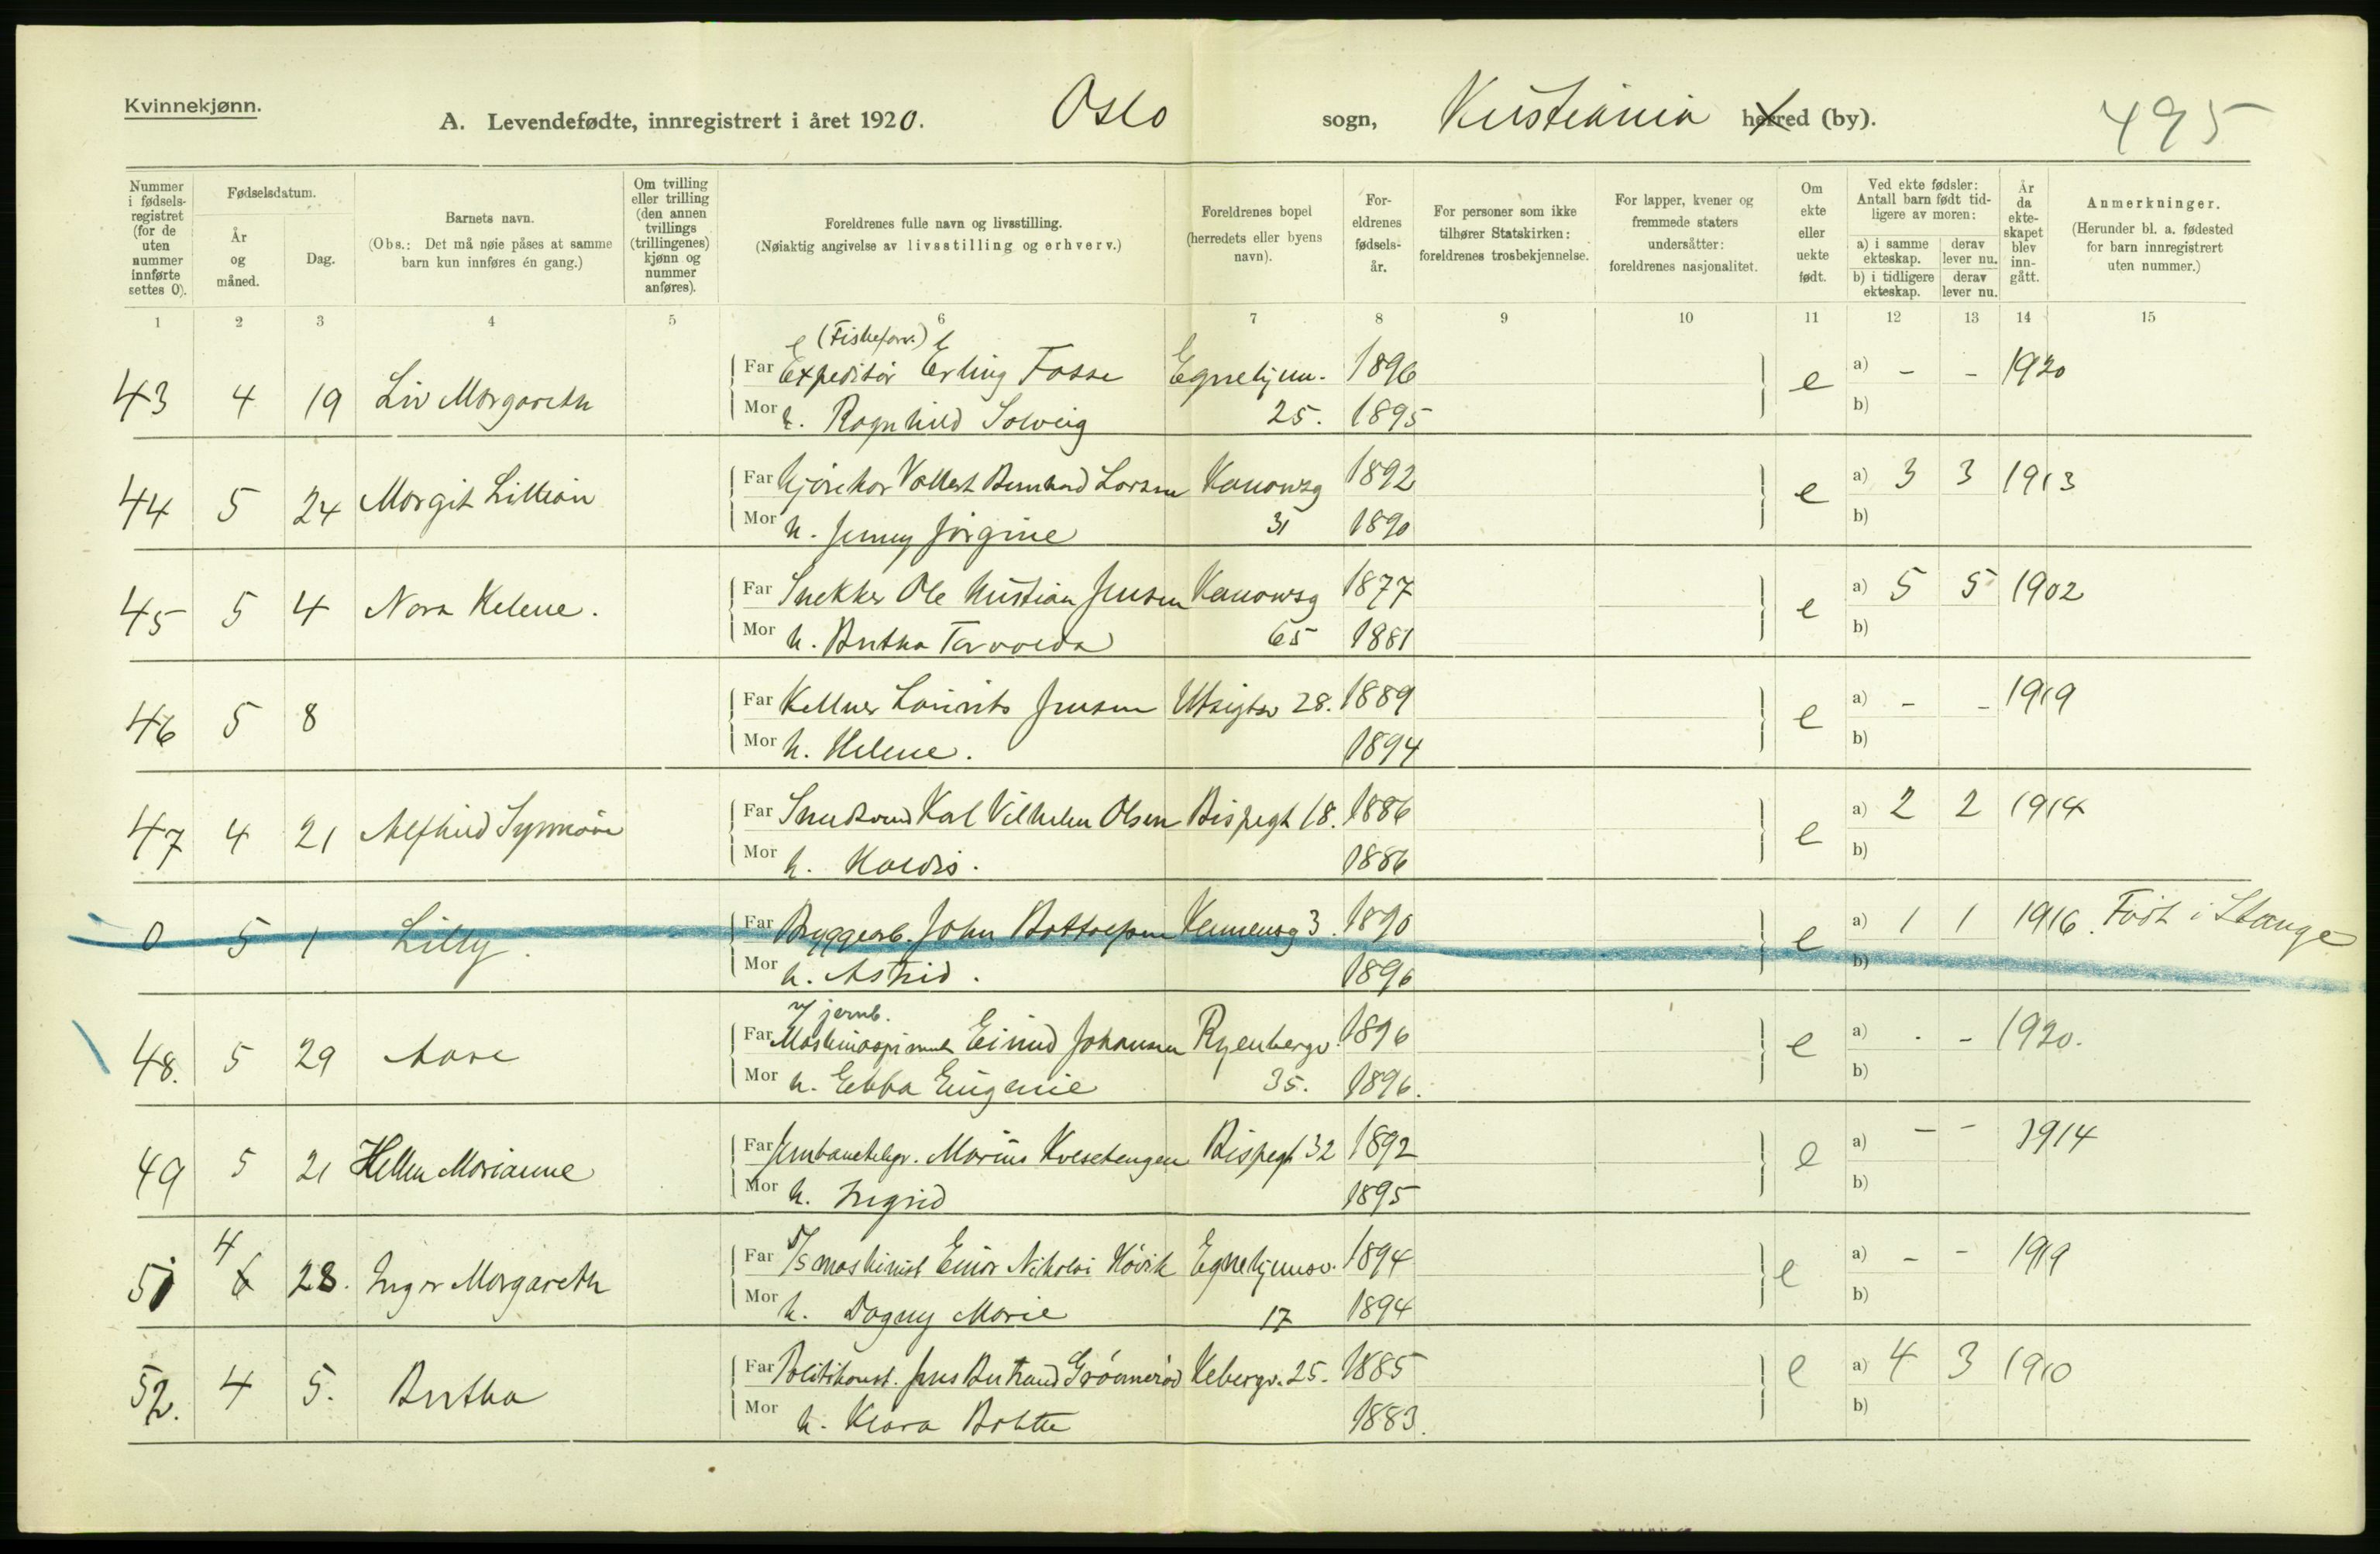 Kvinnekjønn.
A. Levendefødte, innregistrert i året 1920. Oslo sogn, Kristiania herred (by). 495
Nummer i fødsels-registret (for de uten nummer innførte settes 0).
Fødselsdatum.
År og måned.
Dag.
Barnets navn.
(Obs.: Det må nøie påses at samme barn kun innføres én gang.)
Om tvilling eller trilling (den annen tvillings (trillingenes) kjønn og nummer anføres).
Foreldrenes fulle navn og livsstilling.
(Nøiaktig angivelse av livsstilling og erhverv.)
Foreldrenes bopel (herredets eller byens navn).
For-eldrenes fødsels-år.
For personer som ikke tilhører Statskirken: foreldrenes trosbekjennelse.
For lapper, kvener og fremmede staters undersåtter: foreldrenes nasjonalitet.
Om ekte eller uekte født.
Ved ekte fødsler: Antall barn født tid-ligere av moren:
a) i samme ekteskap.
derav lever nu.
b) i tidligere ekteskap.
derav lever nu.
År da ekte-skapet blev inn-gått.
Anmerkninger.
(Herunder bl. a. fødested for barn innregistrert uten nummer.)
1 2 3 4 5 6 7 8 9 10 11 12 13 14 15
(Fiskeforr.)
43 4 19 Liv Margareth Far Expeditør Erling Fosse Egnehjem. 1896 e a) - - 1920
Mor h. Ragnhild Solveig 25. 1895 b)
44 5 24 Margit Lillian Far Kjørekar Valbert Bernhard Larsen Kanonsg 1892 e a) 3 3 1913
Mor h. Jenny Jørgine 31 1890 b)
45 5 4 Nora Helene. Far Snekker Ole Kristian Jensen Kanonsg 1877 e a) 5 5 1902
Mor h. Bertha Torvalda 65 1881 b)
46 5 8 Far Kellner Laurits Jensen Utsigtsv 28. 1889 e a) - - 1919
Mor h. Helene. 1894 b)
47 4 21 Alfhild Synnøve Far Karl Vilhelm Olsen Bispegt 18. 1886 e a) 2 2 1914
Mor h. Valdis. 1886 b)
0 5 1 Lilly. Far Bryggearb. John Bottolfsen 3. 1890 e a) 1 1 1916. Født i Stange
Mor h. Astrid. 1896 b)
v/ jernb.
48. 5 29 Aase Far Eivind Johansen Ryenbergv. 1896 e a) - - 1920.
Mor h. Ebba Eugenie 35. 1896. b)
49 5 21 Hellen Marianne Far Jernbanetelegr. Marius Kvesetengen Bispegt 32 1892 e a) - - 1914
Mor h. Ingrid 1895 b)
4
51 6 28. Inger Margareth Far S/S maskinist Einar Nikolai Høvik Egnehjemsv. 1894 e a) - - 1919
Mor h. Dagny Marie 17 1894 b)
52. 4 5. Bertha Far Politikonst. Jens Bertrand Grønnerød Kebergv. 25. 1885 e a) 4 3 1910
Mor h. Klara Bolette 1883. b)